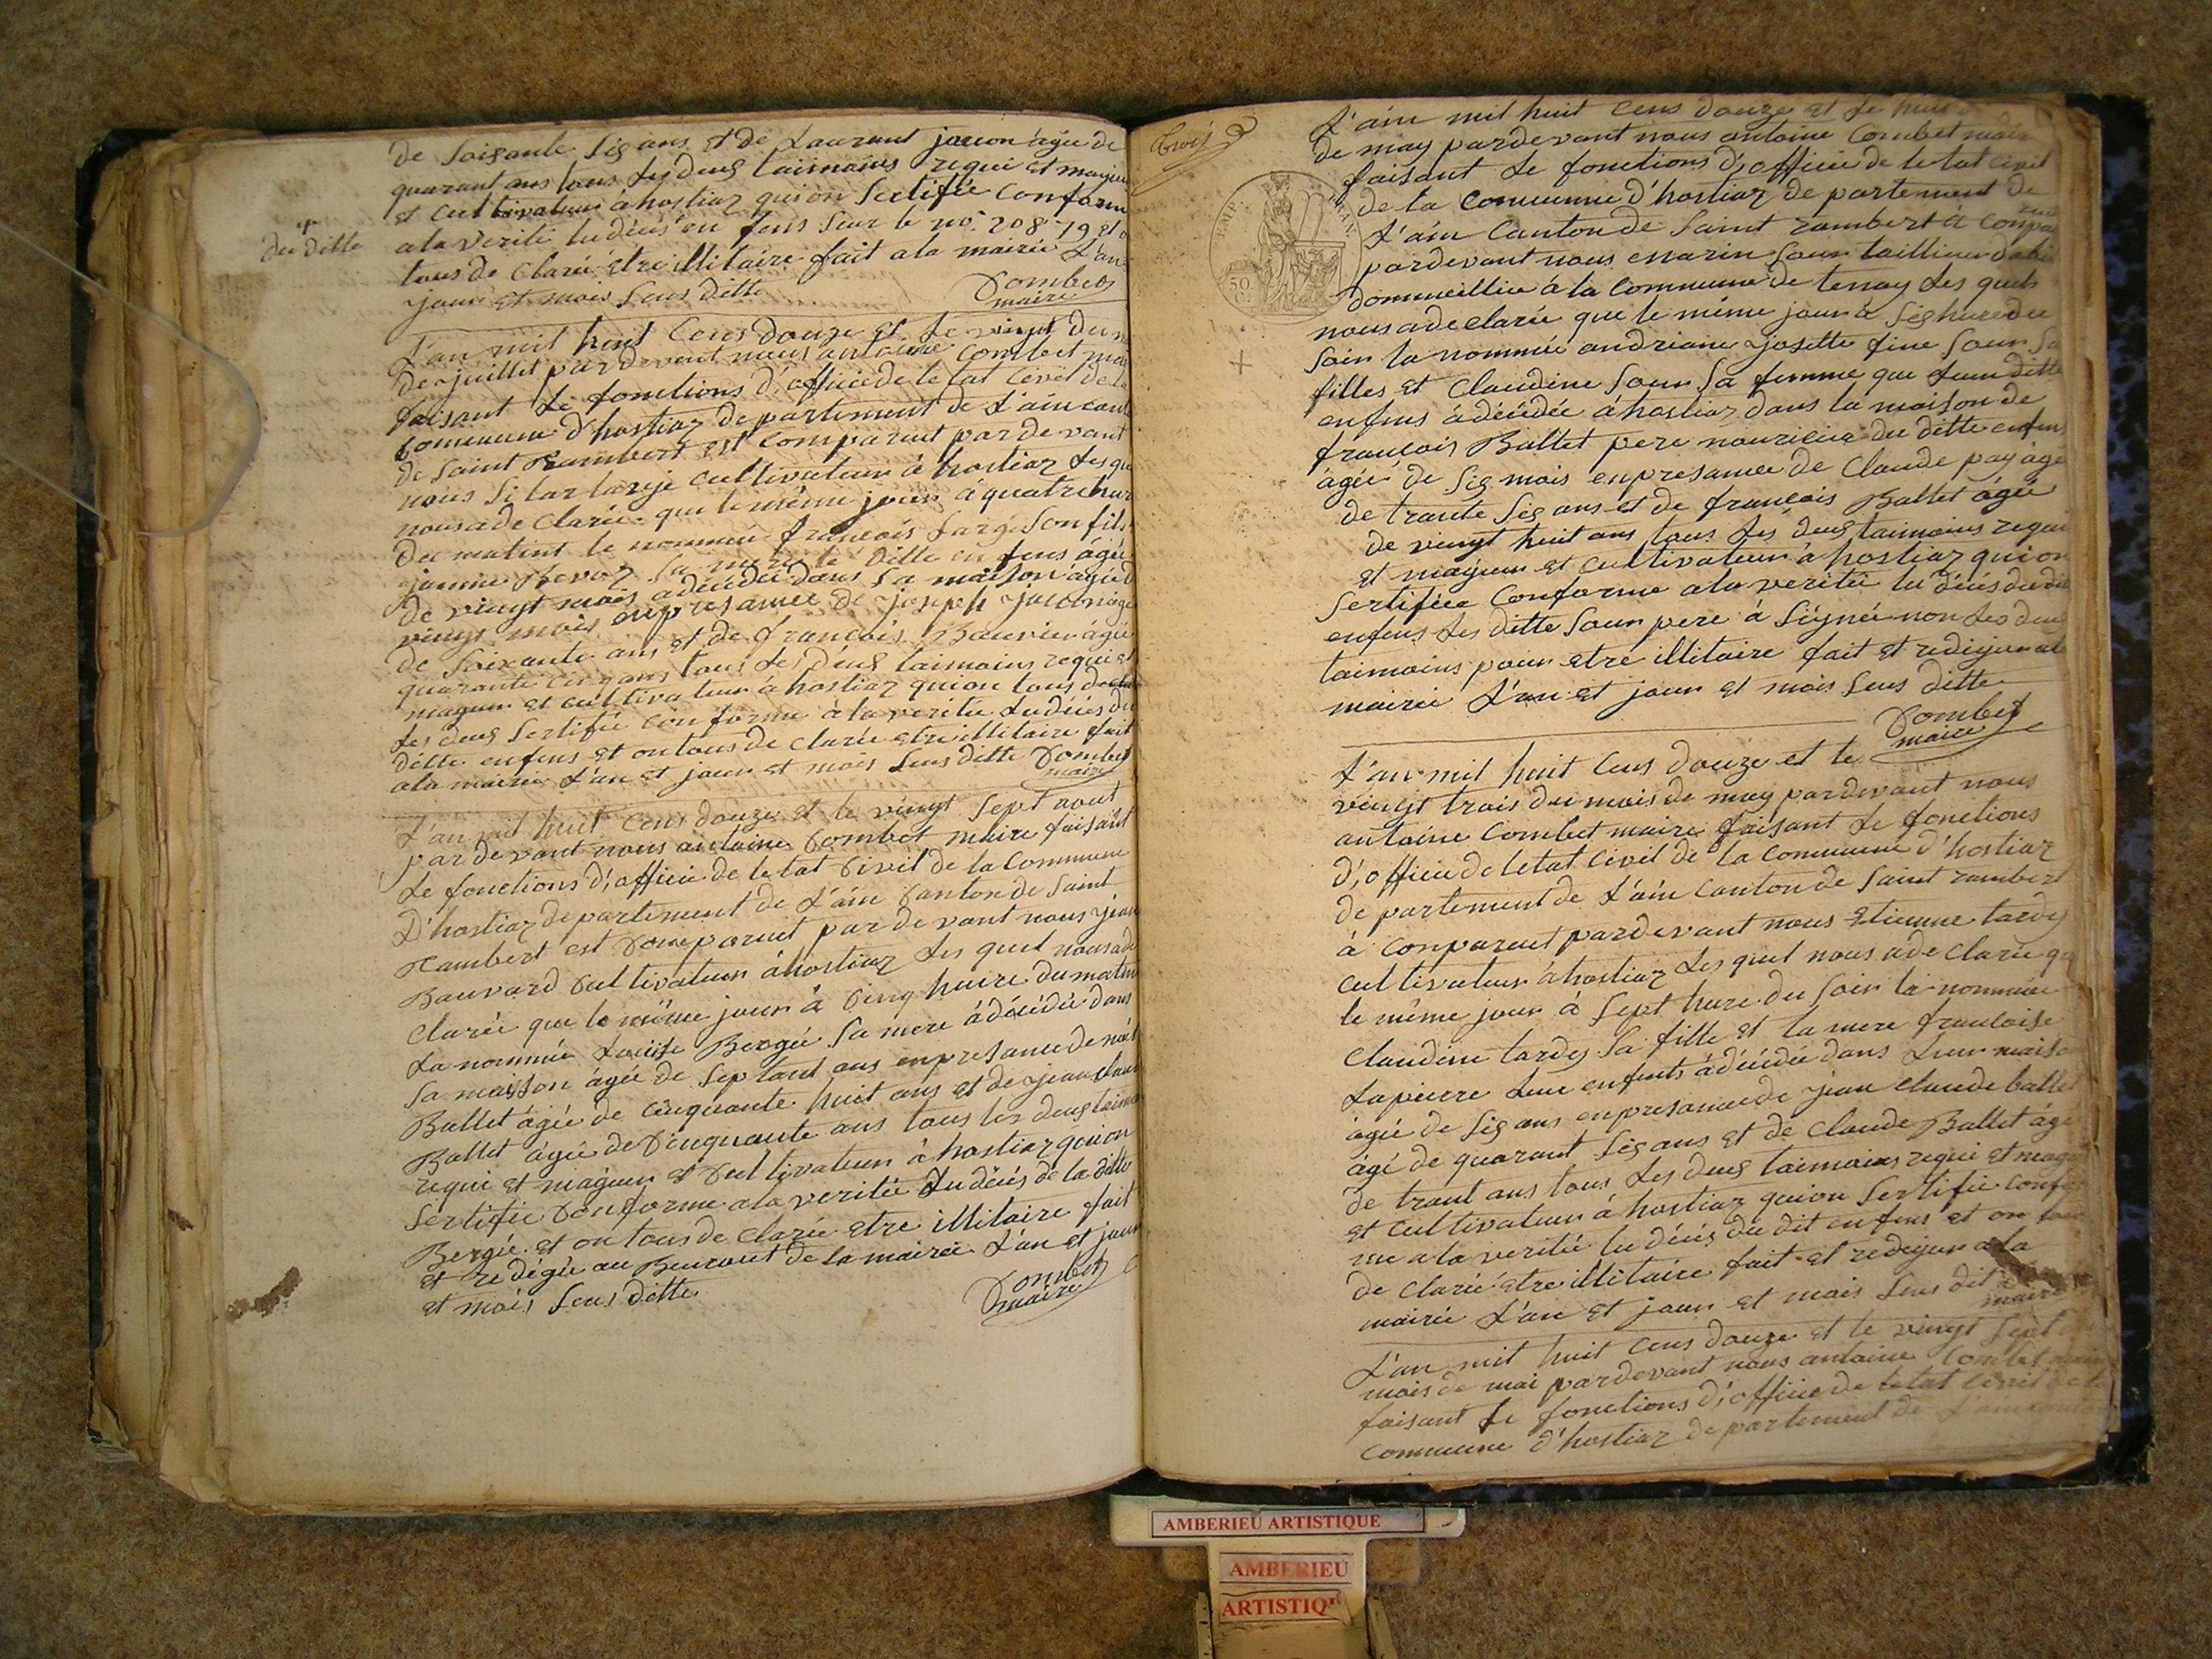 de soisante sis ans et de Laurant jacon agée de
quarant ans tous les deus taimoins requi et majeu
et cultivateur à hostiaz qui on sertifiée conform
du ditte
a la verité lu décés en fens sur le no. 208 19 et o
tous de clarée etre illitaire fait a la mairie L'an
jour et mois sus ditte
Combet
maire
L'an mil huit cens douze et le vingt du m
de juillet pardevant nous antoine combet mai
faisant le fonctions d'officie de letat civil de la
commune d'hostiaz departement de L'ain cant
de saint Rambert est comparuet par de vant
nous cultivateur à hostiaz les que
nous a de clarée que le même jour à quatre hure
du matint le nommée francois Largé son fils
janne Revoz sa mere le ditte en fens agée
de vingt mois a décédée dans sa maison agée d
vingt mois en presance de joseph jacon age
de soixante ans et de francois Bauvier agée
quarante cinq ans tous les deus taimoins requi et
mageur et cultivateur à hostiaz qui on tous
les deus sertifié conforme à la veritée du décés du
ditte enfens et on tous de clarée etre illitaire fait
a la mairie L'an et jour et mois sus ditte Combet
maire
L'an mil huit cens douze et le vingt sept aout
par devant nous antoine Combet maire faisant
le fonctions d'officie de letat Civil de la commune
D'hostiaz departement de L'ain Canton de saint
Rambert est Comparuet par de vant nous jean
Bauvard Cultivateur à hostiaz les quel nous a de
clarée que le même jour à Cinq hure du matin
La nommée Louise Bergée sa mere à décédée dans
sa maison agée de septant ans en presance de noel
Ballet agée de cinquante huit ans et de jean claud
Ballet agée de Cinquante ans tous les deus taimo
requi et mageur et Cultivateur à hostiaz qui on
sertifie Conforme a la veritée du décés de la ditte
Bergée et on tous de clarée etre illitaire fait
et redigée au Beuraut de la mairie L'an et jour
et mois sus ditte
Combet
maire
trois
EMP. FRAN.
50
C.
L'ain mil huit cens douze et le huit
de may pardevant nous antoine Combet mair
faisant le fonctions d'officie de letat civil
de la commune d'hostiaz departement de
L'ain Canton de saint rambert à compa
pardevant nous marin soun taillieur dabi
dommeillie à la commune de tenay les quels
nous a de clarée que le même jour à sis hure du
soir la nommée andriane josette fine soun sa
filles et Claudine soun sa femme que leur ditte
enfens à décédée à hostiaz dans la maison de
francois Ballet pere nouricier du ditte enfens
agée de sis mois en presance de Claude pay age
de trante sis ans et de francois Ballet agée
de vingt huit ans tous les deus taimoins requi
et mageur et cultivateur à hostiaz qui on
sertifiée Conforme a la veritée lu décés du dit
enfens les ditte soun pere à signée non les deus
taimoins pour etre illitaire fait et redigeur a la
mairie L'an et jour et mois sus ditte
Combet
maire
L'an mil huit cens douze et le
vingt trois du mois de may pardevant nous
antoine Combet maire faisant le fonctions
d'officie de letat civil de la commune d'hostiaz
de partement de L'ain Canton de saint rambert
à comparuet pardevant nous Etienne tardy
cultivateur à hostiaz les quel nous a de clarée qu
le même jour à sept hure du soir la nommée
Claudine tardy sa fille et la mere francoise
Lapierre leur enfents à décédée dans leur maison
agée de sis ans en presance de jean claude ballet
agé de quarant sis ans et de Claude Ballet agé
de trant ans tous les deus taimoins requi et mage
et cultivateur à hostiaz qui on sertifié confor
me a la veritée lu décés du dit enfens et on tous
de clarié etre illitaire fait et redigeur a la
mairie L'an et jour et mois sus dit
maire
L'an mil huit cens douze et le vingt sept
mois de mai pardevant nous antoine Combet mair
faisant le fonctions d'officie de letat civil de la
commune d'hostiaz de partement de L'ain
AMBERIEU ARTISTIQUE
AMBERIEU
ARTISTIQ